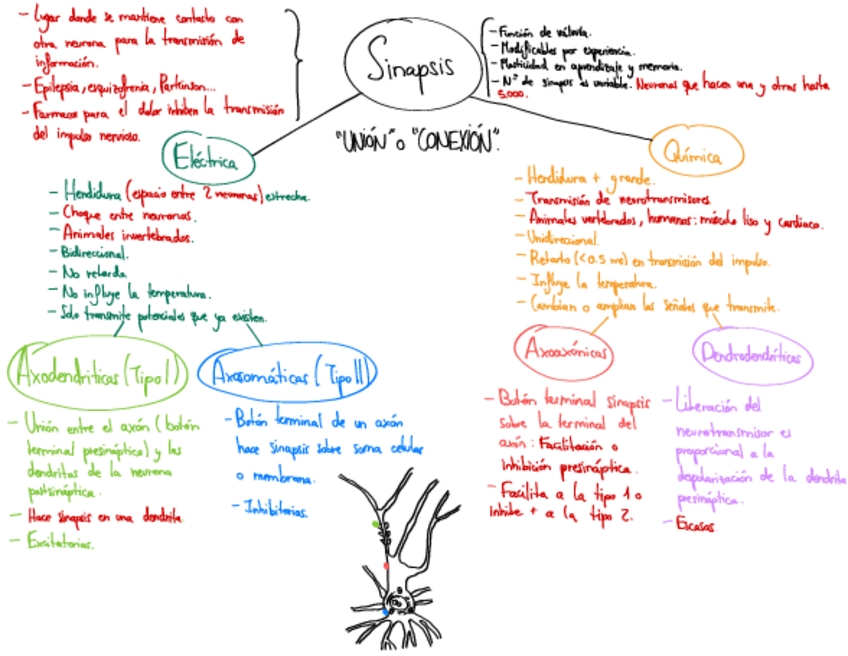 - Lugar donde se mantiene contacto con
otra neurona para la transmisión de
información.
- Epilepsia, esquizofrenia, Parkinson...
- Farmacos para el dolor inhiben la transmisión
del impulso nervioso.
Sinapsis
- Función de válvula.
- Modificables por experiencia.
- Plasticidad en aprendizaje y memoria.
- Nº de sinapsis es variable. Neuronas que hacen una y otras hasta
5.000.
"UNIÓN" o "CONEXIÓN".
Eléctrica
- Hendidura (espacio entre 2 neuronas) estrecha.
- Choque entre neuronas.
- Animales invertebrados.
- Bidireccional.
- No retarda
- No influye la temperatura.
- Solo transmite potenciales que ya existen.
Química
- Hendidura + grande.
- Transmisión de neurotransmisores
- Animales vertebrados, humanos: músculo liso y cardiaco.
- Unidireccional.
- Retardo (<0.5 ms) en transmisión del impulso.
- Influye la temperatura.
- Cambian o amplian las señales que transmite.
Axodendríticas (Tipo I)
- Unión entre el axón (botón
terminal presináptico) y las
dendritas de la neurona
postsináptica.
- Hace sinapsis en una dendrita.
- Excitatorias.
Axosomáticas (Tipo II)
- Botón terminal de un axón
hace sinapsis sobre soma celular
o membrana.
- Inhibitorias.
Axoaxónicas
- Botón terminal sinapsis
sobre la terminal del
axón: Facilitación o
inhibición presináptica.
- Facilita a la tipo 1 o
inhibe + a la tipo 2.
Dendrodendríticas
- Liberación del
neurotransmisor es
proporcional a la
despolarización de la dendrita
presináptica.
- Escasas